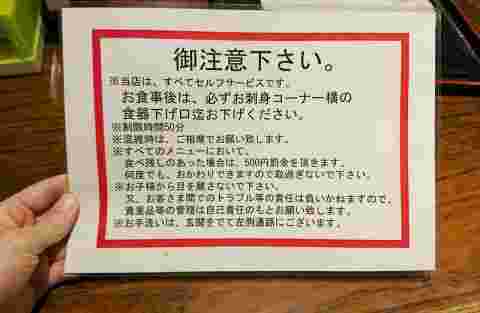 御注意下さい。
※当店は、すべてセルフサービスです。
お食事後は、必ずお刺身コーナー横の
食器下げ口迄お下げください。
※制限時間50分
※混雑時は、ご相席でお願い致します。
※すべてのメニューにおいて、
食べ残しのあった場合は、500円罰金を頂きます。
何度でも、おかわりできますので取過ぎないで下さい。
※お子様から目を離さないで下さい。
又、お客さま間でのトラブル等の責任は負いかねますので、
貴重品等の管理は自己責任のもとお願い致します。
※お手洗いは、玄関をでて左側通路にございます。